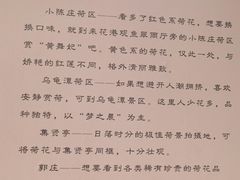 小陈庄荷区——看多了红色系荷花，想要换
换口味，就到来花港观鱼展雨厅旁的小陈庄荷区
赏“黄舞妃”吧。黄色系的荷花，仅此一处，与
娇艳的红莲不同，格外清丽雅致。
乌龟潭荷区——如果想避开人潮拥挤，喜欢
安静赏荷，可到乌龟潭景区。这里人少花多，品
种独特，以“梦之晨”为主。
集贤亭——日落时分的极佳荷景拍摄地，可
将荷花与集贤亭同框，十分壮观。
郭庄——想要看到各类稀有珍贵的荷花品